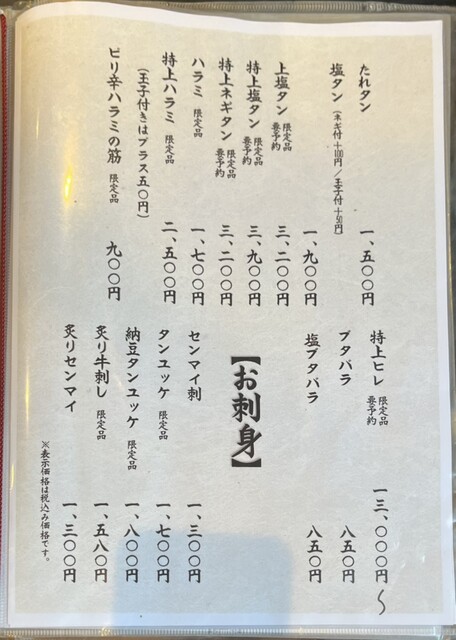 たれタン 一、五〇〇円
塩タン（ネギ付＋100円／玉子付＋50円） 一、九〇〇円
上塩タン 限定品 要予約 三、二〇〇円
特上塩タン 限定品 要予約 三、九〇〇円
特上ネギタン 限定品 要予約 三、二〇〇円
ハラミ 限定品 一、七〇〇円
特上ハラミ 限定品 二、五〇〇円
（玉子付きはプラス五〇円）
ピリ辛ハラミの筋 限定品 九〇〇円
特上ヒレ 限定品 要予約 一三、〇〇〇円〜
ブタバラ 八五〇円
塩ブタバラ 八五〇円
【お刺身】
センマイ刺 一、三〇〇円
タンユッケ 限定品 一、七〇〇円
納豆タンユッケ 限定品 一、八〇〇円
炙り牛刺し 限定品 一、五八〇円
炙りセンマイ 一、三〇〇円
※表示価格は税込み価格です。